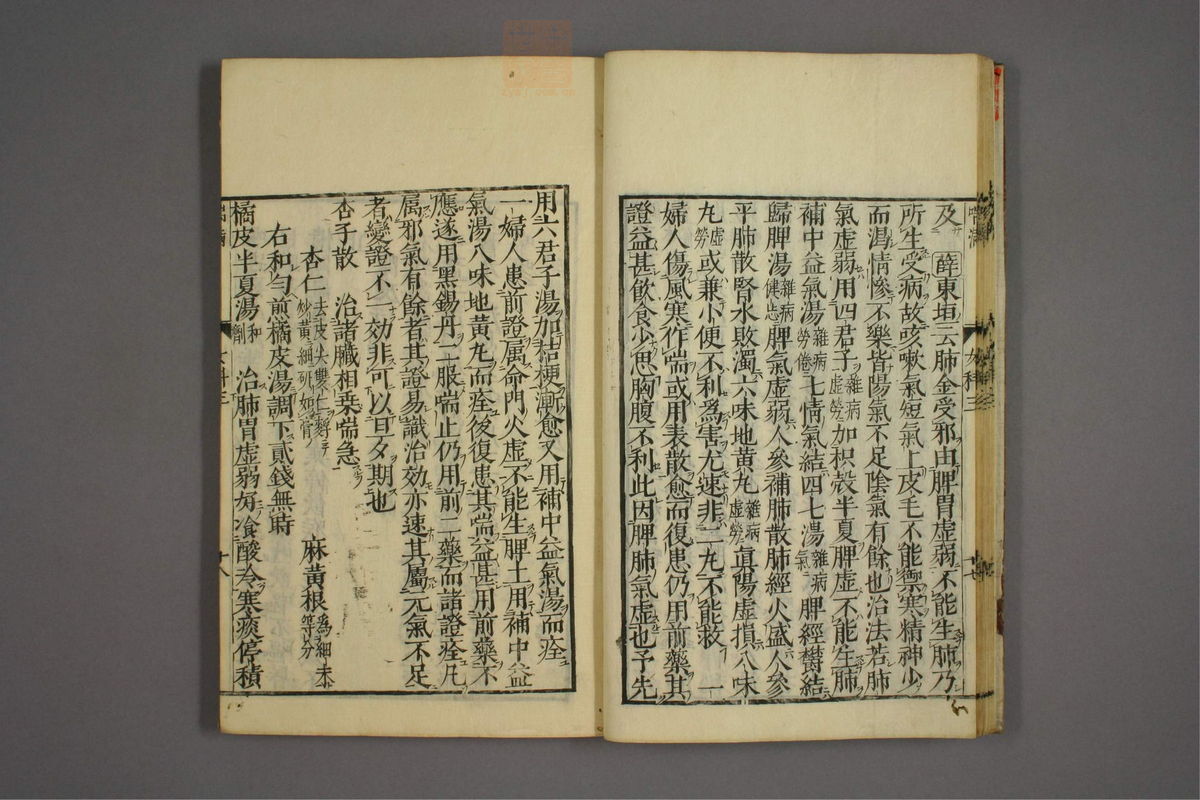 及 薛東垣云肺金受邪由脾胃虚弱不能生肺乃
所生受病故咳嗽氣短氣上皮毛不能禦寒精神少
而渴情惨不樂皆陽氣不足陰氣有餘也治法若肺
氣虚弱用四君子雜病虚勞加枳殻半夏脾虚不能生肺
補中益氣湯雜病勞倦七情氣結四七湯雜病氣脾經欝結
歸脾湯雜病健忘脾氣虚弱人參補肺散肺經火盛人參
平肺散腎水敗濁六味地黄丸雜病虚勞眞陽虚損八味
丸虚勞或兼小便不利爲害尤速非二丸不能救 一
婦人傷風寒作喘或用表散愈而復患仍用前藥其
證益甚飲食少思胸腹不利此因脾肺氣虚也予先
用六君子湯加桔梗漸愈又用補中益氣湯而痊
一婦人患前證属命門火虚不能生脾土用補中益
氣湯八味地黄丸而痊後復患其喘益甚用前藥不
應遂用黒錫丹二服喘止仍用前二藥而諸證痊凡
属邪氣有餘者其證易識治効亦速其屬元氣不足
者變證不一効非可以旦夕期也
杏子散 治諸臟相乗喘急
杏仁去皮尖雙仁麩炒黄細研如膏 麻黄根等分爲細末
右和勻煎橘皮湯調下貳錢無時
橘皮半夏湯和劑 治肺胃虚弱好食酸冷寒痰停積
女科三
十八